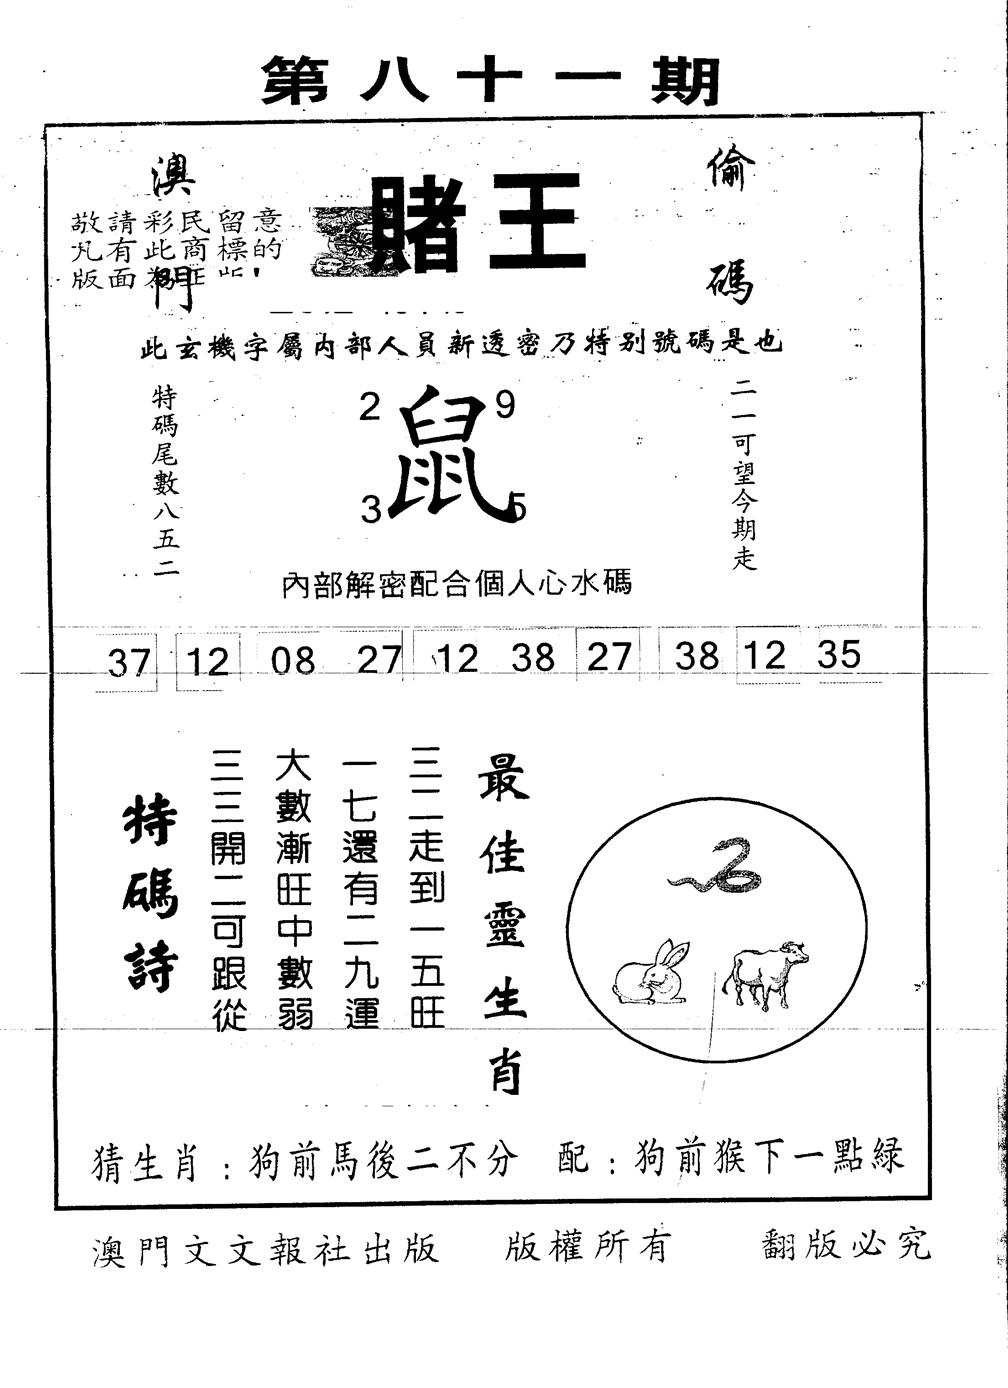 第八十一期
澳門
賭王
偷碼
敬請彩民留意
凡有此商標的
版面為正版!
此玄機字屬內部人員新透密乃特别號碼是也
特碼尾數八五二
2 9
鼠
3 5
二一可望今期走
內部解密配合個人心水碼
37 12 08 27 12 38 27 38 12 35
最佳靈生肖
三二走到一五旺
一七還有二九運
大數漸旺中數弱
三三開二可跟從
特碼詩
猜生肖：狗前馬後二不分 配：狗前猴下一點緑
澳門文文報社出版 版權所有 翻版必究